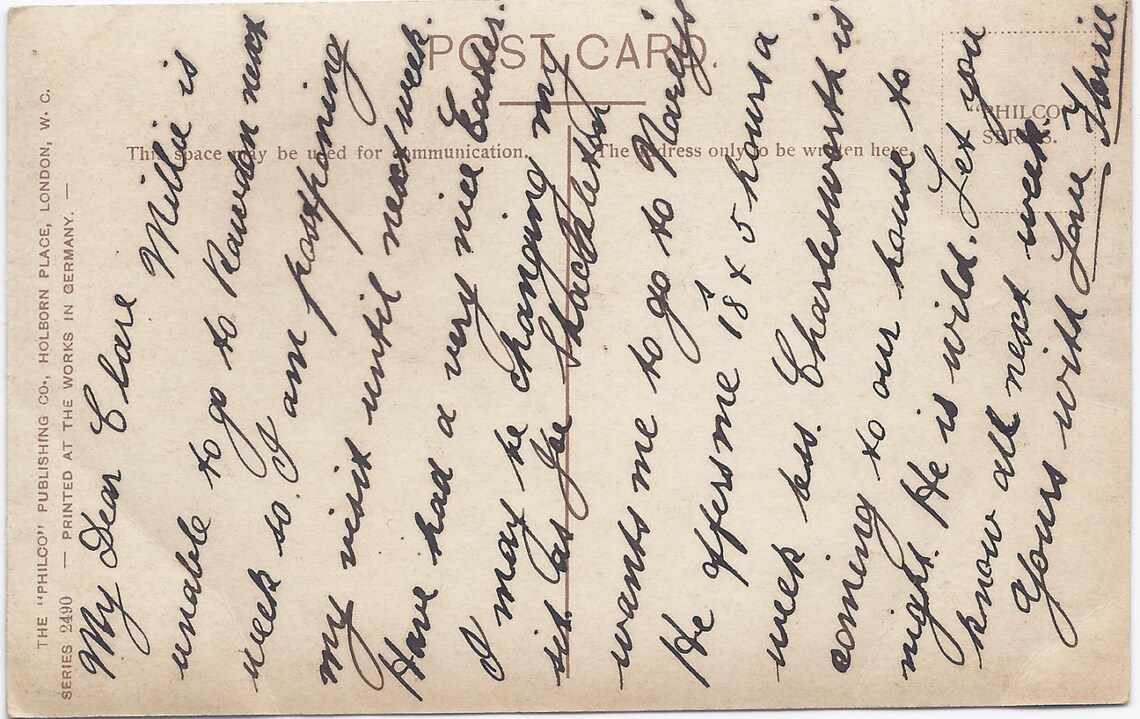 POST CARD.
This space may be used for communication.
The address only to be written here.
"PHILCO"
SERIES.
THE "PHILCO" PUBLISHING CO., HOLBORN PLACE, LONDON, W. C.
SERIES 2490 — PRINTED AT THE WORKS IN GERMANY. —
My Dear Clare
Millie is
unable to go to Rawdon next
week so I am postponing
my visit until next week.
Have had a very nice Easter.
I may be changing my
sit. as Joe Shackleton
wants me to go to Narey's
He offers me 18s & 5 hours a
week less. Charlesworth is
coming to our house to
night. He is wild. Let you
know all next week.
Yours with Love